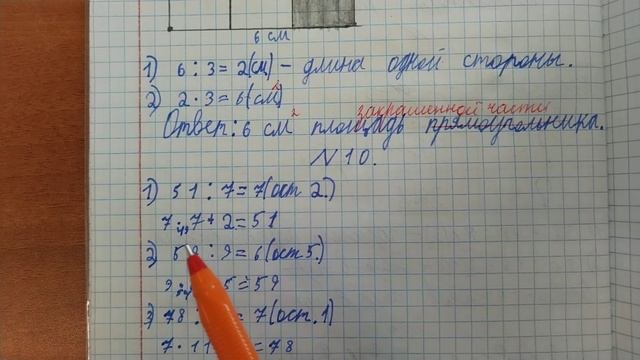 6 см
1) 6 : 3 = 2 (см) – длина одной стороны.
2) 2 · 3 = 6 (см²)
закрашенной части
Ответ: 6 см² площадь прямоугольника.
N 10.
1) 51 : 7 = 7 (ост. 2.)
7 · 7 + 2 = 51
49
2) 59 : 9 = 6 (ост. 5.)
9 · 5 = 59
54
3) 78 : = 7 (ост. 1)
7 · 11 = 78